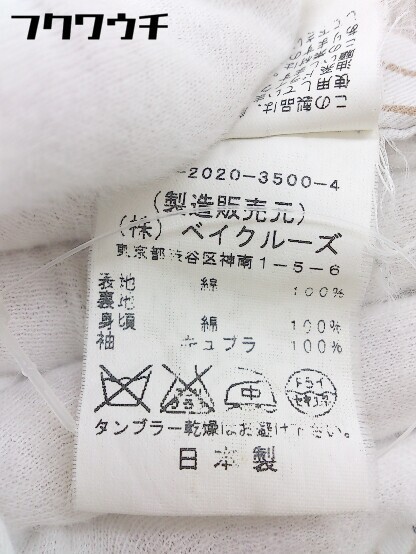 フクワウチ
この製品は、
使用してい
-2020-3500-4
(製造販売元)
(株) ベイクルーズ
東京都渋谷区神南1-5-6
表地 綿 100%
裏地
身頃 綿 100%
袖 キュプラ 100%
ドライ
タンブラー乾燥はお避け下さい。
日本製